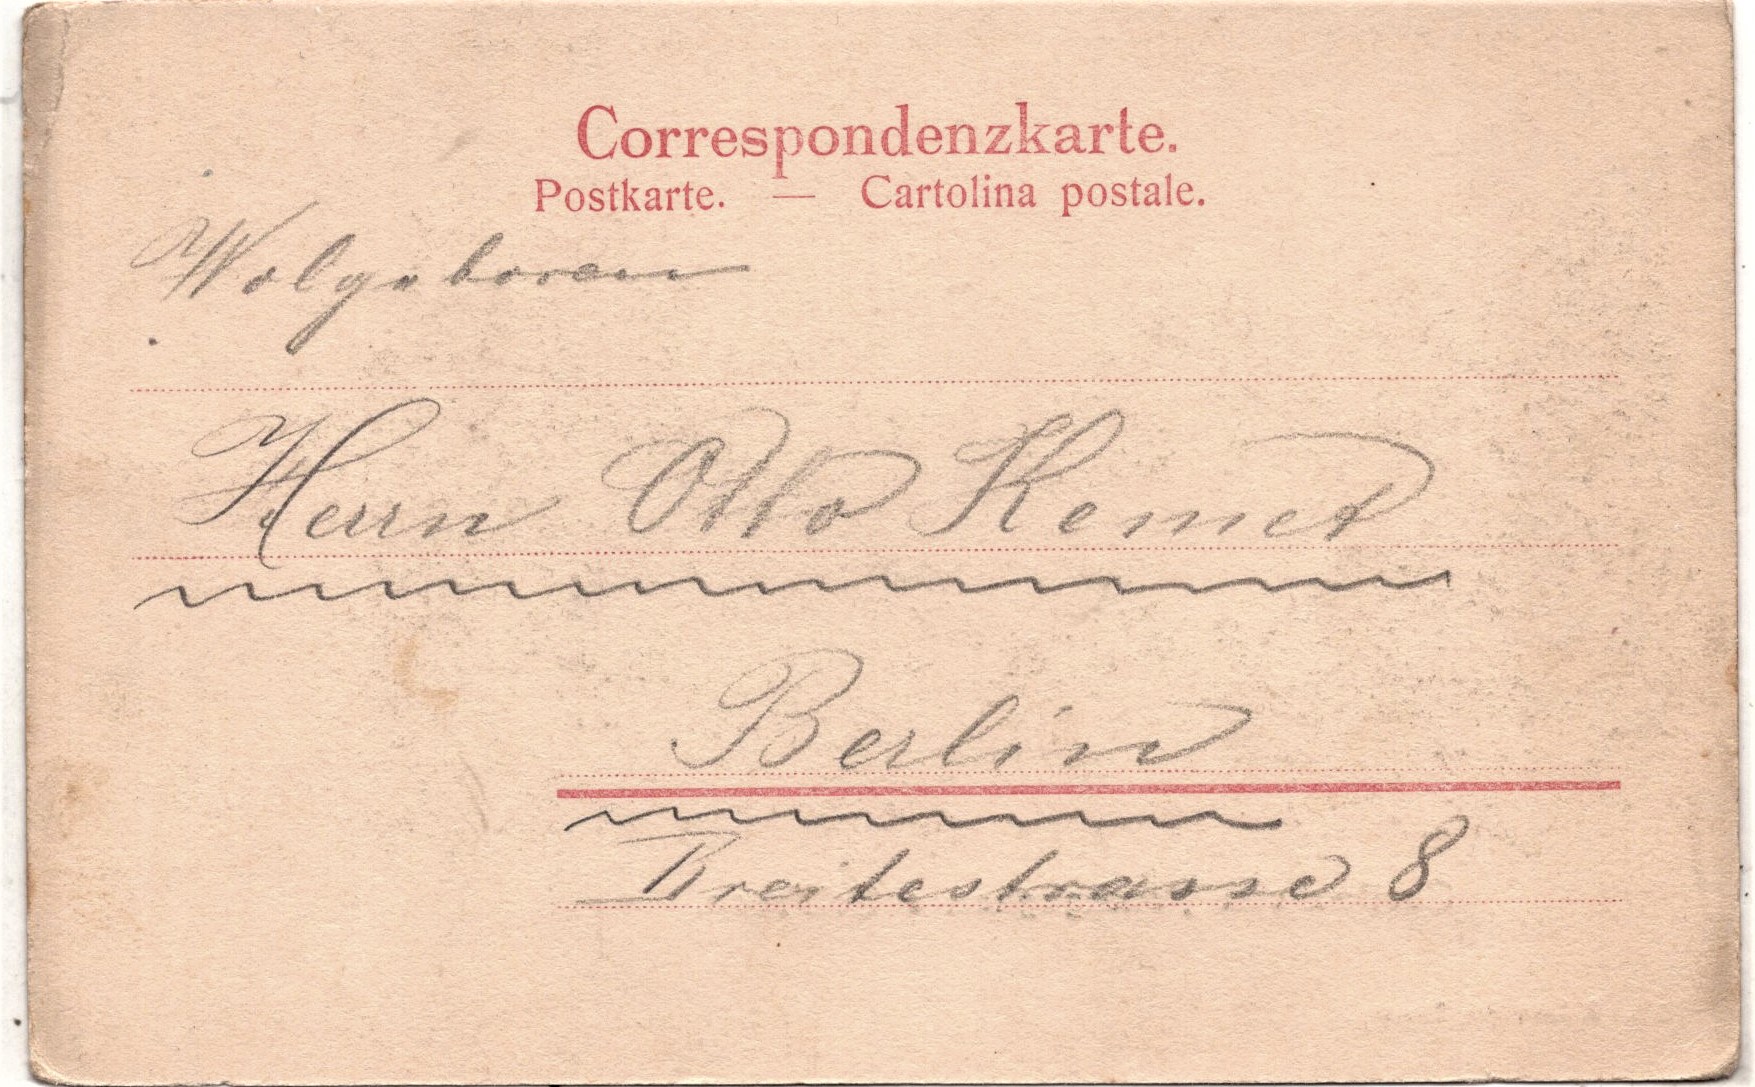 Correspondenzkarte.
Postkarte. — Cartolina postale.
Wolgeboren
Herrn Otto Kemet
Berlin
Breitestrasse 8